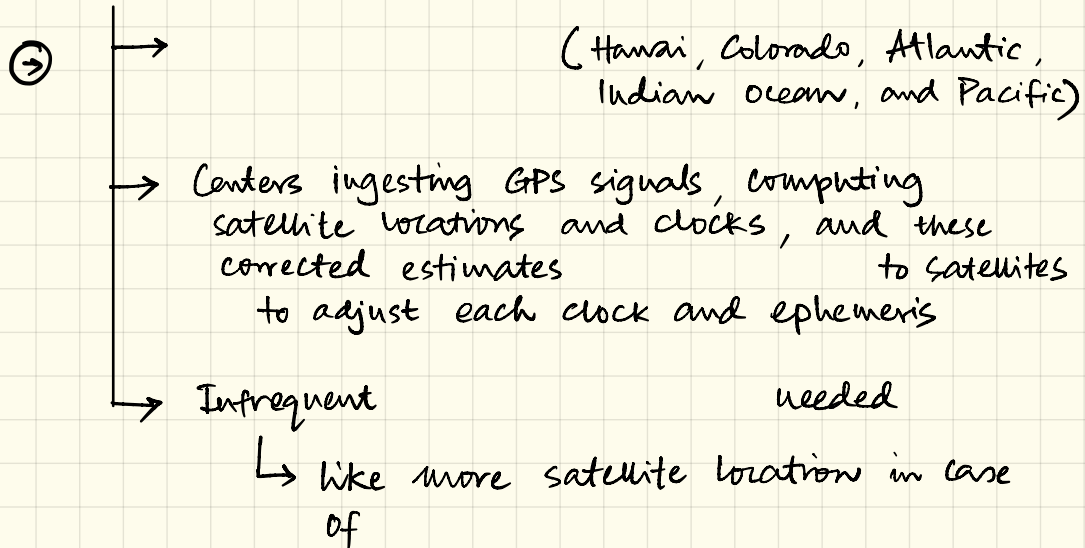 (Hawai, Colorado, Atlantic,
Indian ocean, and Pacific)
Centers ingesting GPS signals, computing
satellite locations and clocks, and these
corrected estimates to satellites
to adjust each clock and ephemeris
Infrequent needed
like more satellite location in case
of